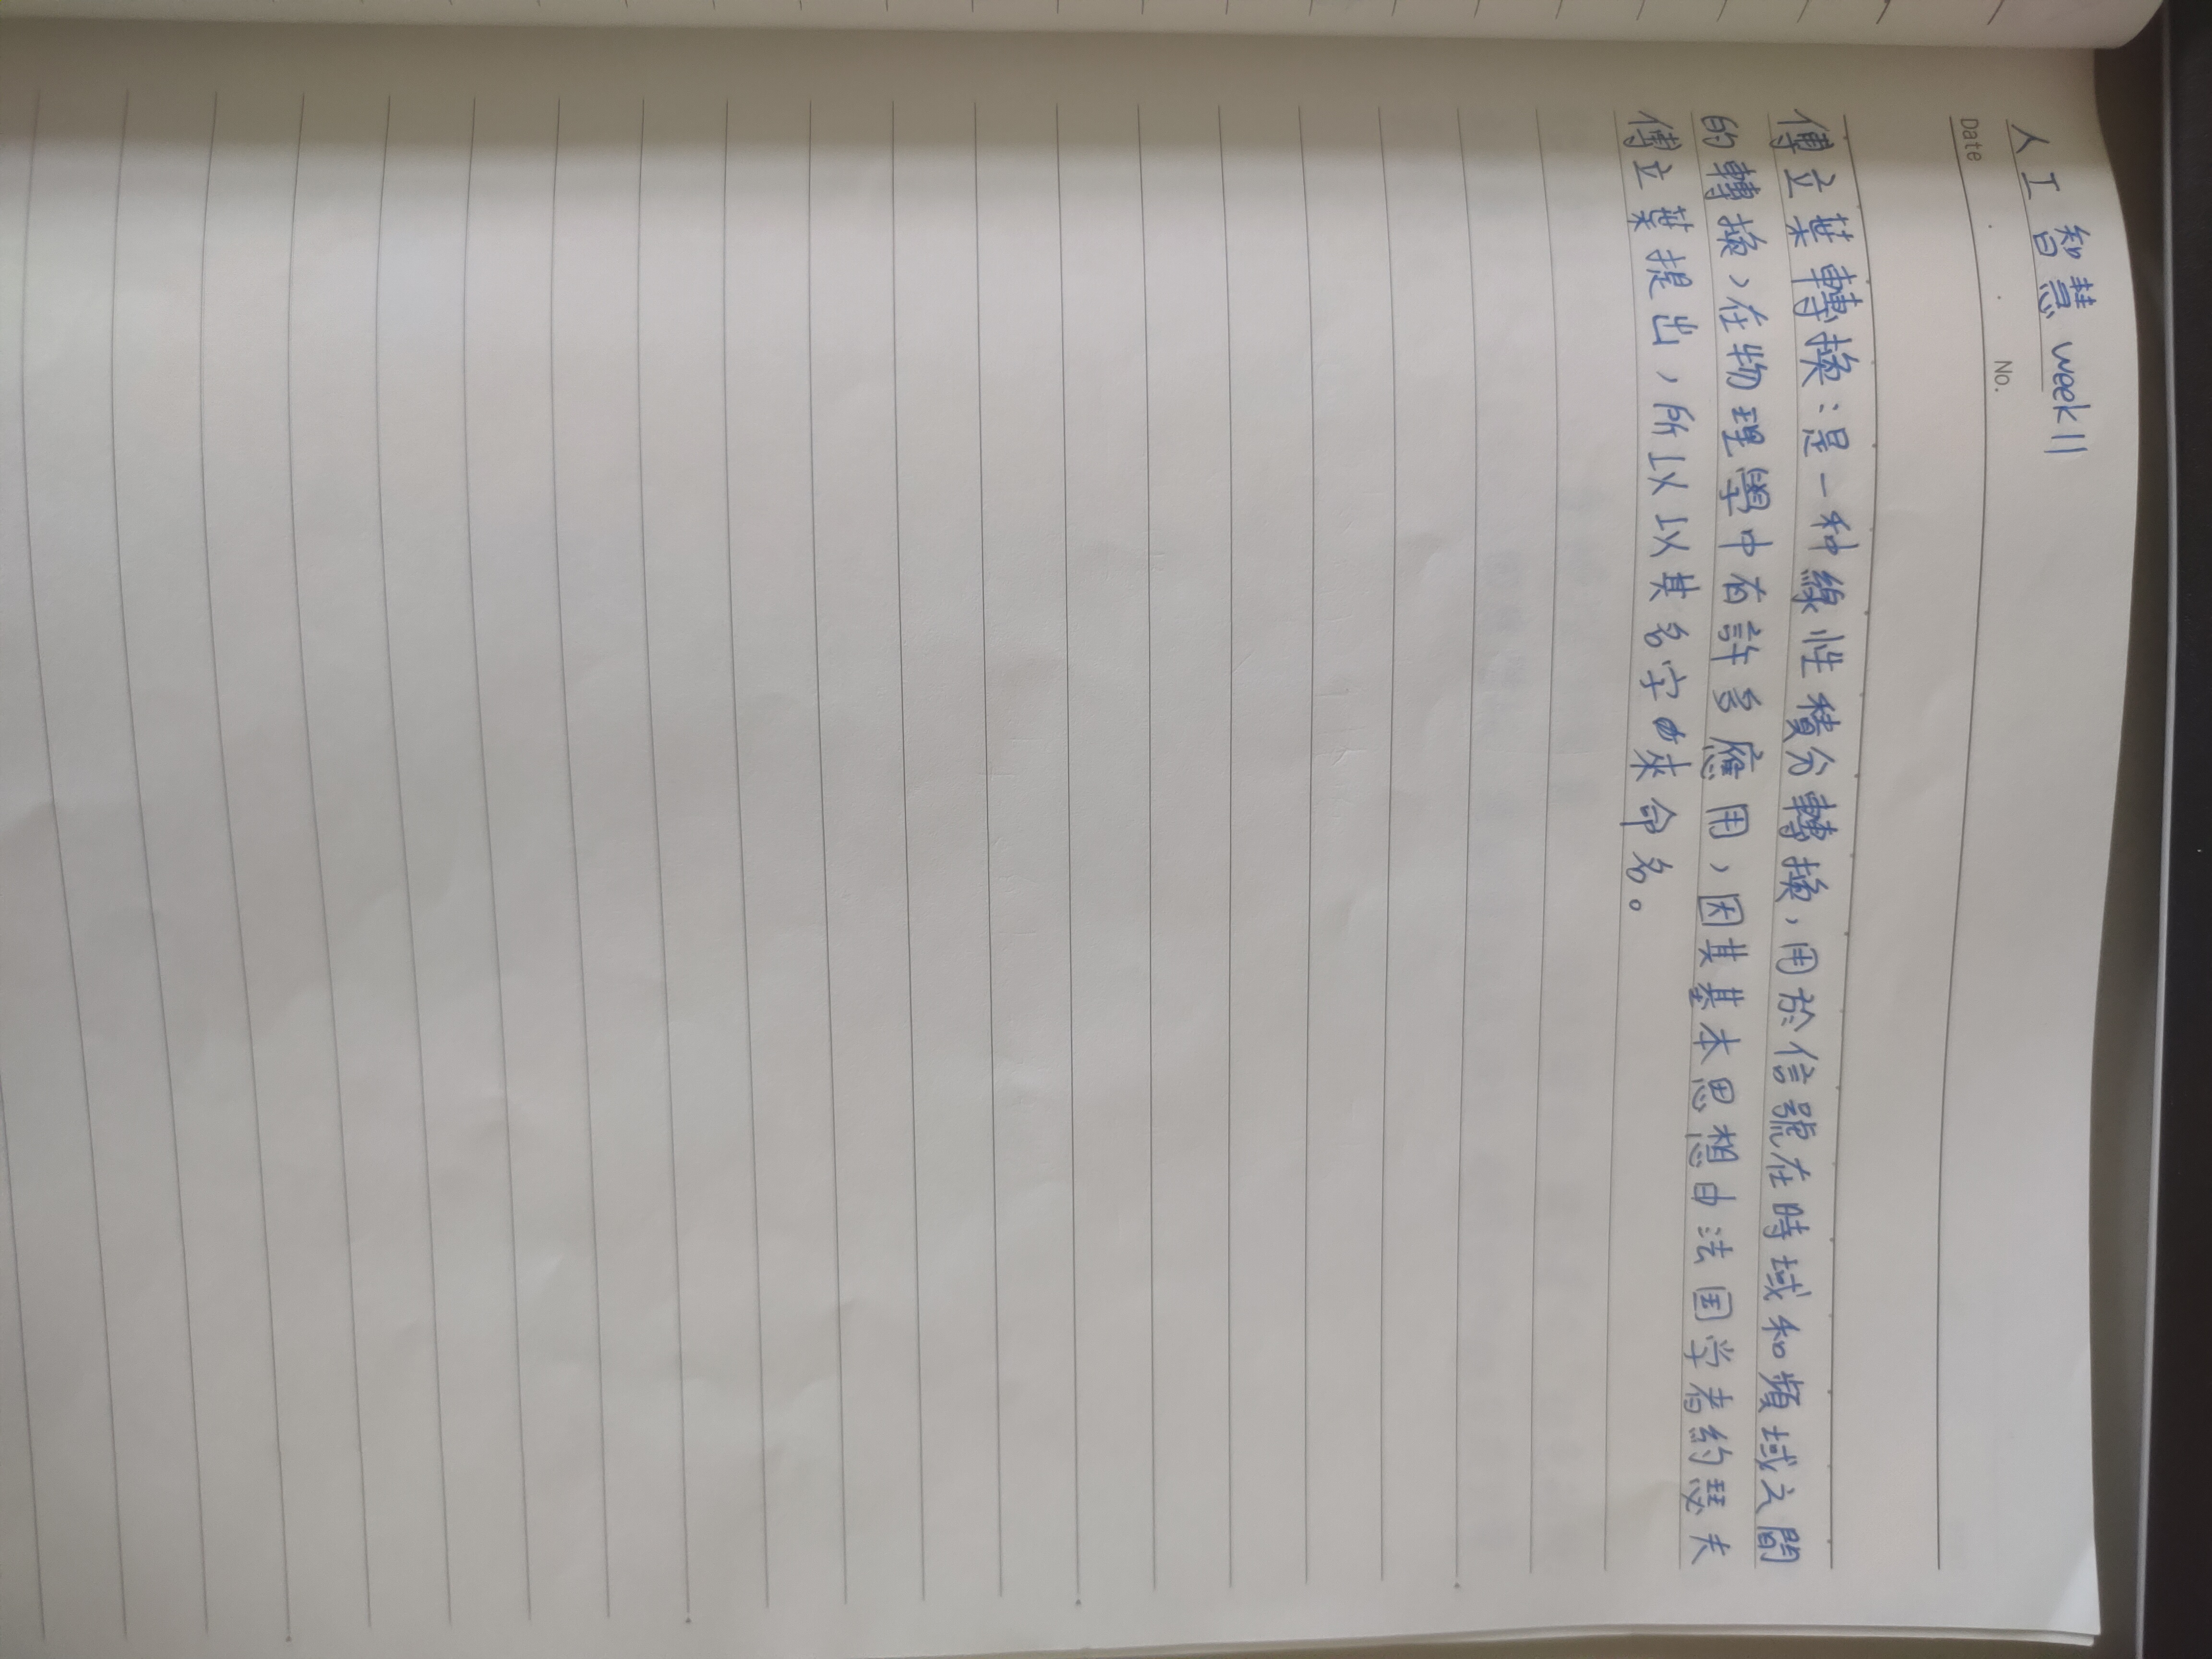 人工智慧 week11
Date . . No.
傅立葉轉換:是一种線性積分轉換,用於信號在時域和頻域之間
的轉換,在物理學中有許多應用,因其基本思想由法国学者約瑟夫
傅立葉提出,所以以其名字來命名。